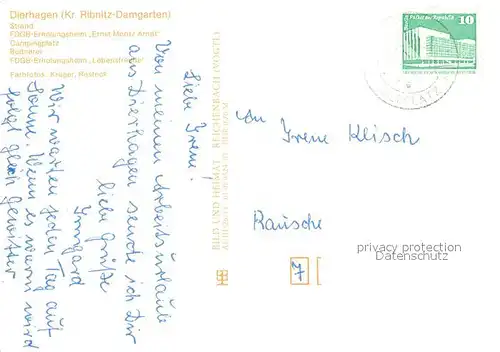 Dierhagen (Kr. Ribnitz-Damgarten)
Strand
FDGB-Erholungsheim „Ernst Moritz Arndt"
Campingplatz
FDGB-Erholungsheim „Lebensfreude"
Farbfotos: Kruger, Rostock
Liebe Irene!
Von meinen Arbeitsurlaub
aus Dierhagen sende ich Dir
liebe Grüße
Irmgard
Wir warten jeden Tag auf
Sonne. Wenn es warm wird
folgt gleich Gewitter.
BILD UND HEIMAT REICHENBACH (VOGTL)
Palast der Republik
10
PLATZ
An
Irene Klisch
Rausche
7
privacy protection
Datenschutz